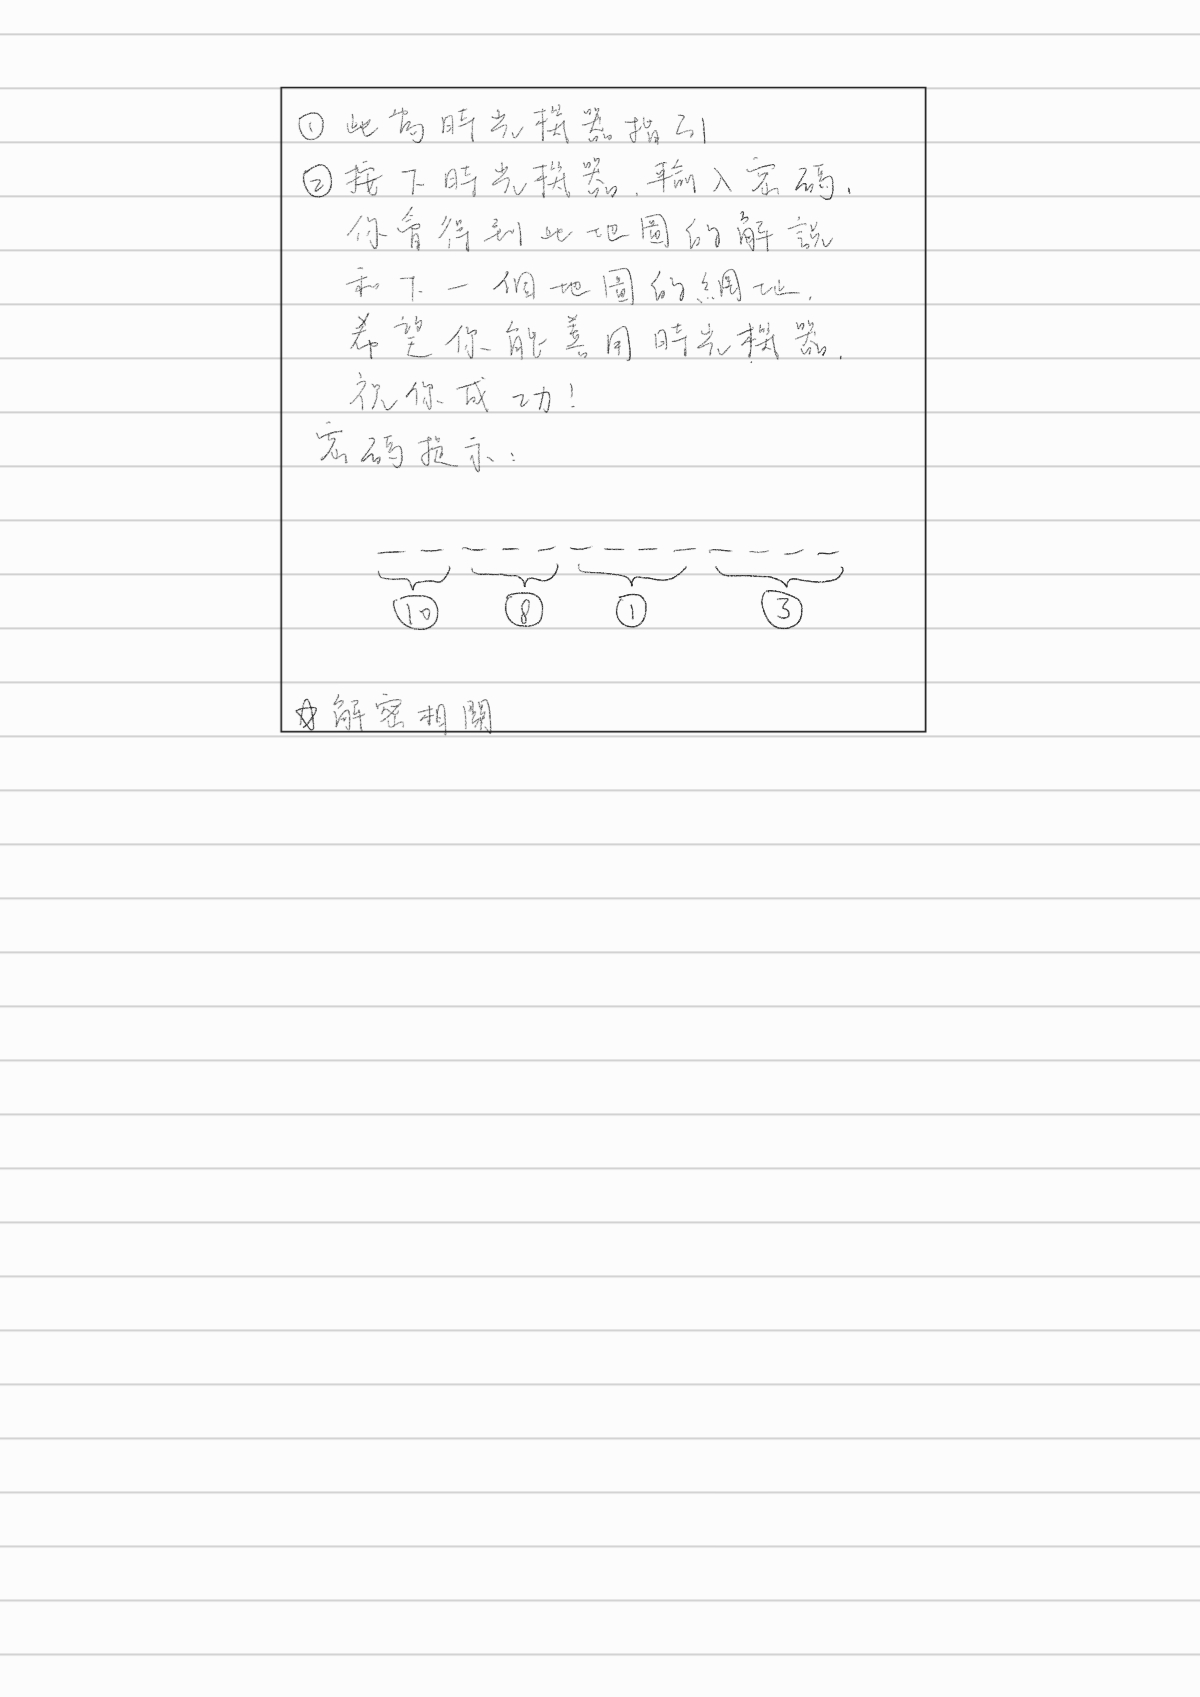 ① 此為時光機器指引
② 按下時光機器.輸入密碼.
你會得到此地圖的解說
和下一個地圖的網址.
希望你能善用時光機器.
祝你成功!
密碼提示:
_ _ _ _ _ _ _ _ _ _ _ _ _
⑩ ⑧ ① ③
☆解密相關